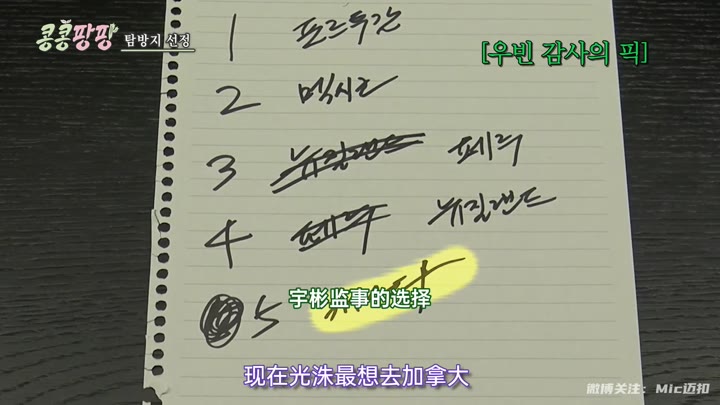 콩콩팡팡 탐방지 선정
[우빈 감사의 픽]
1 포르투갈
2 멕시코
3 뉴질랜드 페루
4 페루 뉴질랜드
5
宇彬监事的选择
现在光洙最想去加拿大
微博关注：Mic迈扣